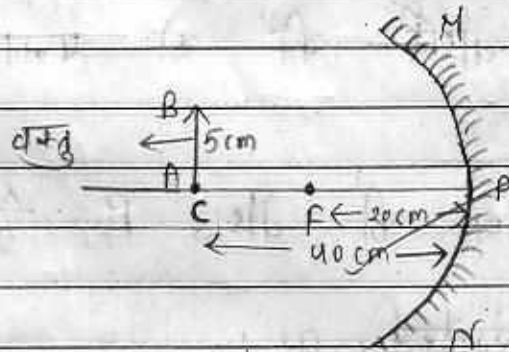 M
B
वस्तु 5 cm
A P
C F ← 20cm →
← 40 cm →
N